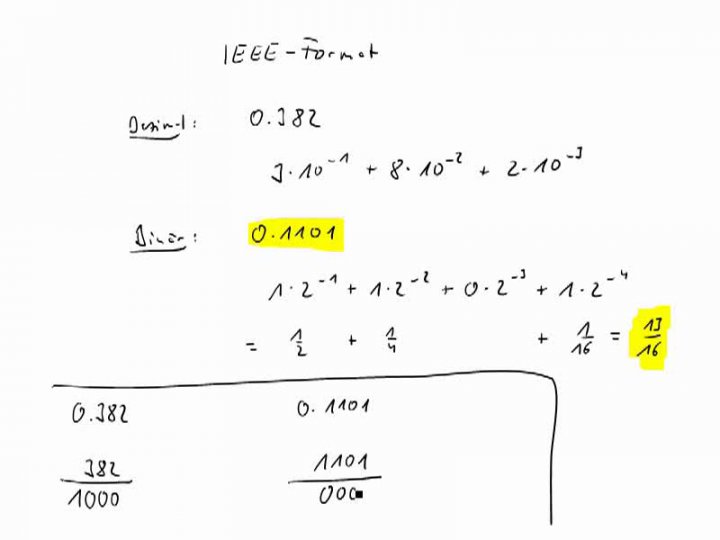 IEEE-Format
Dezimal: 0.382
3·10⁻¹ + 8·10⁻² + 2·10⁻³
Binär: 0.1101
1·2⁻¹ + 1·2⁻² + 0·2⁻³ + 1·2⁻⁴
= 1/2 + 1/4 + 1/16 = 13/16
0.382 0.1101
382 1101
1000 000